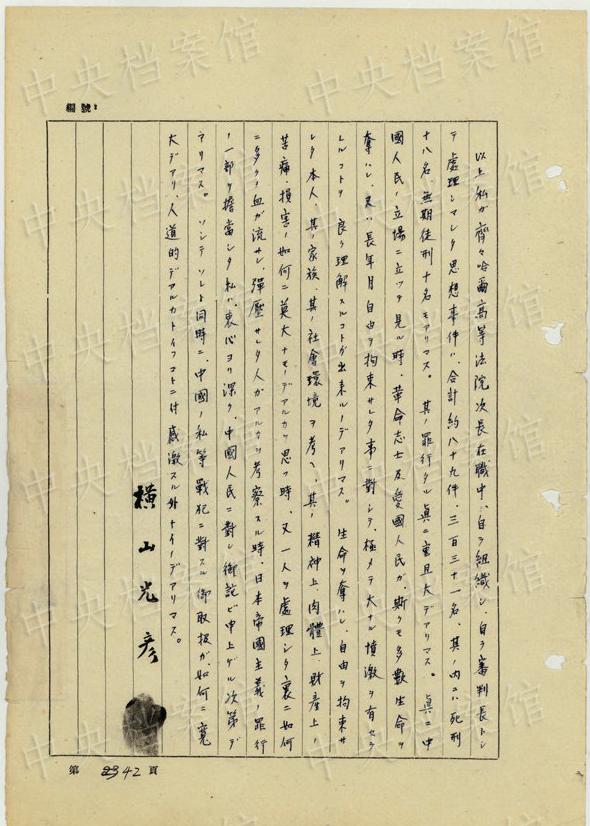 編號：
以上私が齊々哈爾高等法院次長在職中、自ラ組織シ、自ラ審判長トシ
テ處理シマシタ思想事件ハ、合計約八十九件、三百三十一名、其ノ内ニハ死刑
十八名、無期徒刑十名モアリマス。其ノ罪行タル眞ニ重且大デアリマス。眞ニ中
國人民ノ立場ニ立ツテ見ル時、革命志士及愛國人民ガ、斯クモ多數生命ヲ
奪ハレ、又ハ長年月自由ヲ拘束サレタ事ニ對シテ、極メテ大ナル憤激ヲ有セラ
レルコトヲ良ク理解スルコトガ出来ルノデアリマス。生命ヲ奪ハレ、自由ヲ拘束サ
レタ本人、其ノ家族、其ノ社會環境ヲ考ヘ、其ノ精神上、肉體上、財産上ノ
苦痛、損害ノ如何ニ莫大ナモノデアルカヲ思フ時、又一人ヲ處理シタ裏ニ如何
ニ多クノ血ガ流サレ、彈壓サレタ人ガアルカヲ考察スル時、日本帝國主義ノ罪行
ノ一部ヲ擔當シタ私ハ、衷心ヨリ深ク、中國人民ニ對シ御詫ビ申上ゲル次第デ
アリマス。ソシテソレト同時ニ、中國ノ私等戰犯ニ對スル御取扱ガ、如何ニ寛
大デアリ、人道的デアルカトイフコトニ付感激スル外ナイノデアリマス。
橫山光彦
第 42 頁
中央档案馆